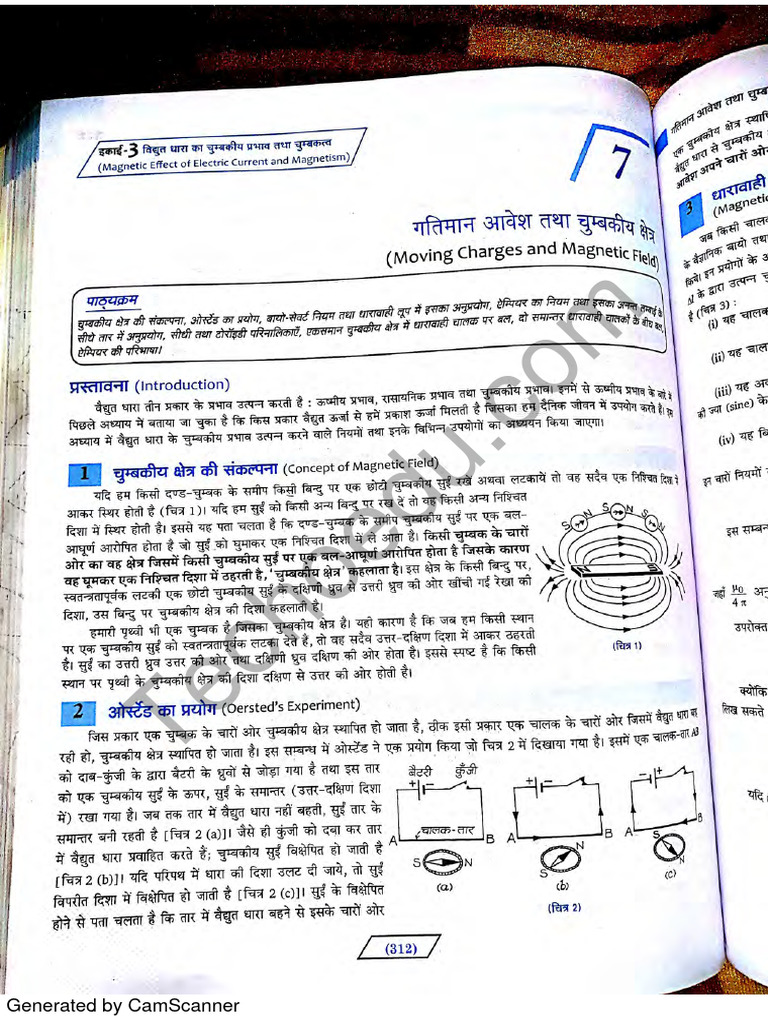 इकाई-3 विद्युत धारा का चुम्बकीय प्रभाव तथा चुम्बकत्व
(Magnetic Effect of Electric Current and Magnetism)
7
गतिमान आवेश तथा चुम्बकीय क्षेत्र
(Moving Charges and Magnetic Field)
पाठ्यक्रम
चुम्बकीय क्षेत्र की संकल्पना, ओर्स्टेड का प्रयोग, बायो-सेवर्ट नियम तथा धारावाही लूप में इसका अनुप्रयोग, ऐम्पियर का नियम तथा इसका अनन्त लम्बाई के
सीधे तार में अनुप्रयोग, सीधी तथा टोरॉइडी परिनालिकाएँ, एकसमान चुम्बकीय क्षेत्र में धारावाही चालक पर बल, दो समान्तर धारावाही चालकों के बीच बल,
ऐम्पियर की परिभाषा।
प्रस्तावना (Introduction)
वैद्युत धारा तीन प्रकार के प्रभाव उत्पन्न करती है : ऊष्मीय प्रभाव, रासायनिक प्रभाव तथा चुम्बकीय प्रभाव। इनमें से ऊष्मीय प्रभाव के बारे में
पिछले अध्याय में बताया जा चुका है कि किस प्रकार वैद्युत ऊर्जा से हमें प्रकाश ऊर्जा मिलती है जिसका हम दैनिक जीवन में उपयोग करते हैं। इस
अध्याय में वैद्युत धारा के चुम्बकीय प्रभाव उत्पन्न करने वाले नियमों तथा इनके विभिन्न उपयोगों का अध्ययन किया जाएगा।
1 चुम्बकीय क्षेत्र की संकल्पना (Concept of Magnetic Field)
यदि हम किसी दण्ड-चुम्बक के समीप किसी बिन्दु पर एक छोटी चुम्बकीय सुई रखें अथवा लटकायें तो वह सदैव एक निश्चित दिशा में
आकर स्थिर होती है (चित्र 1)। यदि हम सुई को किसी अन्य बिन्दु पर रख दें तो वह किसी अन्य निश्चित
दिशा में स्थिर होती है। इससे यह पता चलता है कि दण्ड-चुम्बक के समीप चुम्बकीय सुई पर एक बल-
आघूर्ण आरोपित होता है जो सुई को घुमाकर एक निश्चित दिशा में ले आता है। किसी चुम्बक के चारों
ओर का वह क्षेत्र जिसमें किसी चुम्बकीय सुई पर एक बल-आघूर्ण आरोपित होता है जिसके कारण
वह घूमकर एक निश्चित दिशा में ठहरती है, 'चुम्बकीय क्षेत्र' कहलाता है। इस क्षेत्र के किसी बिन्दु पर,
स्वतन्त्रतापूर्वक लटकी एक छोटी चुम्बकीय सुई के दक्षिणी ध्रुव से उत्तरी ध्रुव की ओर खींची गई रेखा की
दिशा, उस बिन्दु पर चुम्बकीय क्षेत्र की दिशा कहलाती है।
S N S N S N
(चित्र 1)
हमारी पृथ्वी भी एक चुम्बक है जिसका चुम्बकीय क्षेत्र है। यही कारण है कि जब हम किसी स्थान
पर एक चुम्बकीय सुई को स्वतन्त्रतापूर्वक लटका देते हैं, तो वह सदैव उत्तर-दक्षिण दिशा में आकर ठहरती
है। सुई का उत्तरी ध्रुव उत्तर की ओर तथा दक्षिणी ध्रुव दक्षिण की ओर होता है। इससे स्पष्ट है कि किसी
स्थान पर पृथ्वी के चुम्बकीय क्षेत्र की दिशा दक्षिण से उत्तर की ओर होती है।
2 ओर्स्टेड का प्रयोग (Oersted's Experiment)
जिस प्रकार एक चुम्बक के चारों ओर चुम्बकीय क्षेत्र स्थापित हो जाता है, ठीक इसी प्रकार एक चालक के चारों ओर जिसमें वैद्युत धारा बह
रही हो, चुम्बकीय क्षेत्र स्थापित हो जाता है। इस सम्बन्ध में ओर्स्टेड ने एक प्रयोग किया जो चित्र 2 में दिखाया गया है। इसमें एक चालक-तार AB
को दाब-कुंजी के द्वारा बैटरी के ध्रुवों से जोड़ा गया है तथा इस तार
को एक चुम्बकीय सुई के ऊपर, सुई के समान्तर (उत्तर-दक्षिण दिशा
में) रखा गया है। जब तक तार में वैद्युत धारा नहीं बहती, सुई तार के
समान्तर बनी रहती है [चित्र 2 (a)]। जैसे ही कुंजी को दबा कर तार
में वैद्युत धारा प्रवाहित करते हैं; चुम्बकीय सुई विक्षेपित हो जाती है
[चित्र 2 (b)]। यदि परिपथ में धारा की दिशा उलट दी जाये, तो सुई
विपरीत दिशा में विक्षेपित हो जाती है [चित्र 2 (c)]। सुई के विक्षेपित
होने से पता चलता है कि तार में वैद्युत धारा बहने से इसके चारों ओर
बैटरी कुँजी
चालक-तार
A B A B A B
S N S N S N
(a) (b) (c)
(चित्र 2)
(312)
गतिमान आवेश तथा चुम्ब
एक चुम्बकीय क्षेत्र स्थापि
वैद्युत धारा से चुम्बकीय
आवेश अपने चारों ओ
3 धारावाही
(Magnetic
जब किसी चाल
के वैज्ञानिक बायो तथ
किये। इन प्रयोगों के अ
Δl के द्वारा उत्पन्न च
है (चित्र 3) :
(i) यह चालक
(ii) यह चाल
(iii) यह अव
की ज्या (sine) के
(iv) यह बि
इन चारों नियमों
इस सम्बन
जहाँ μ0/4π अनु
उपरोक्त
क्योंकि
लिख सकते
यदि
Techpedu.com
Generated by CamScanner